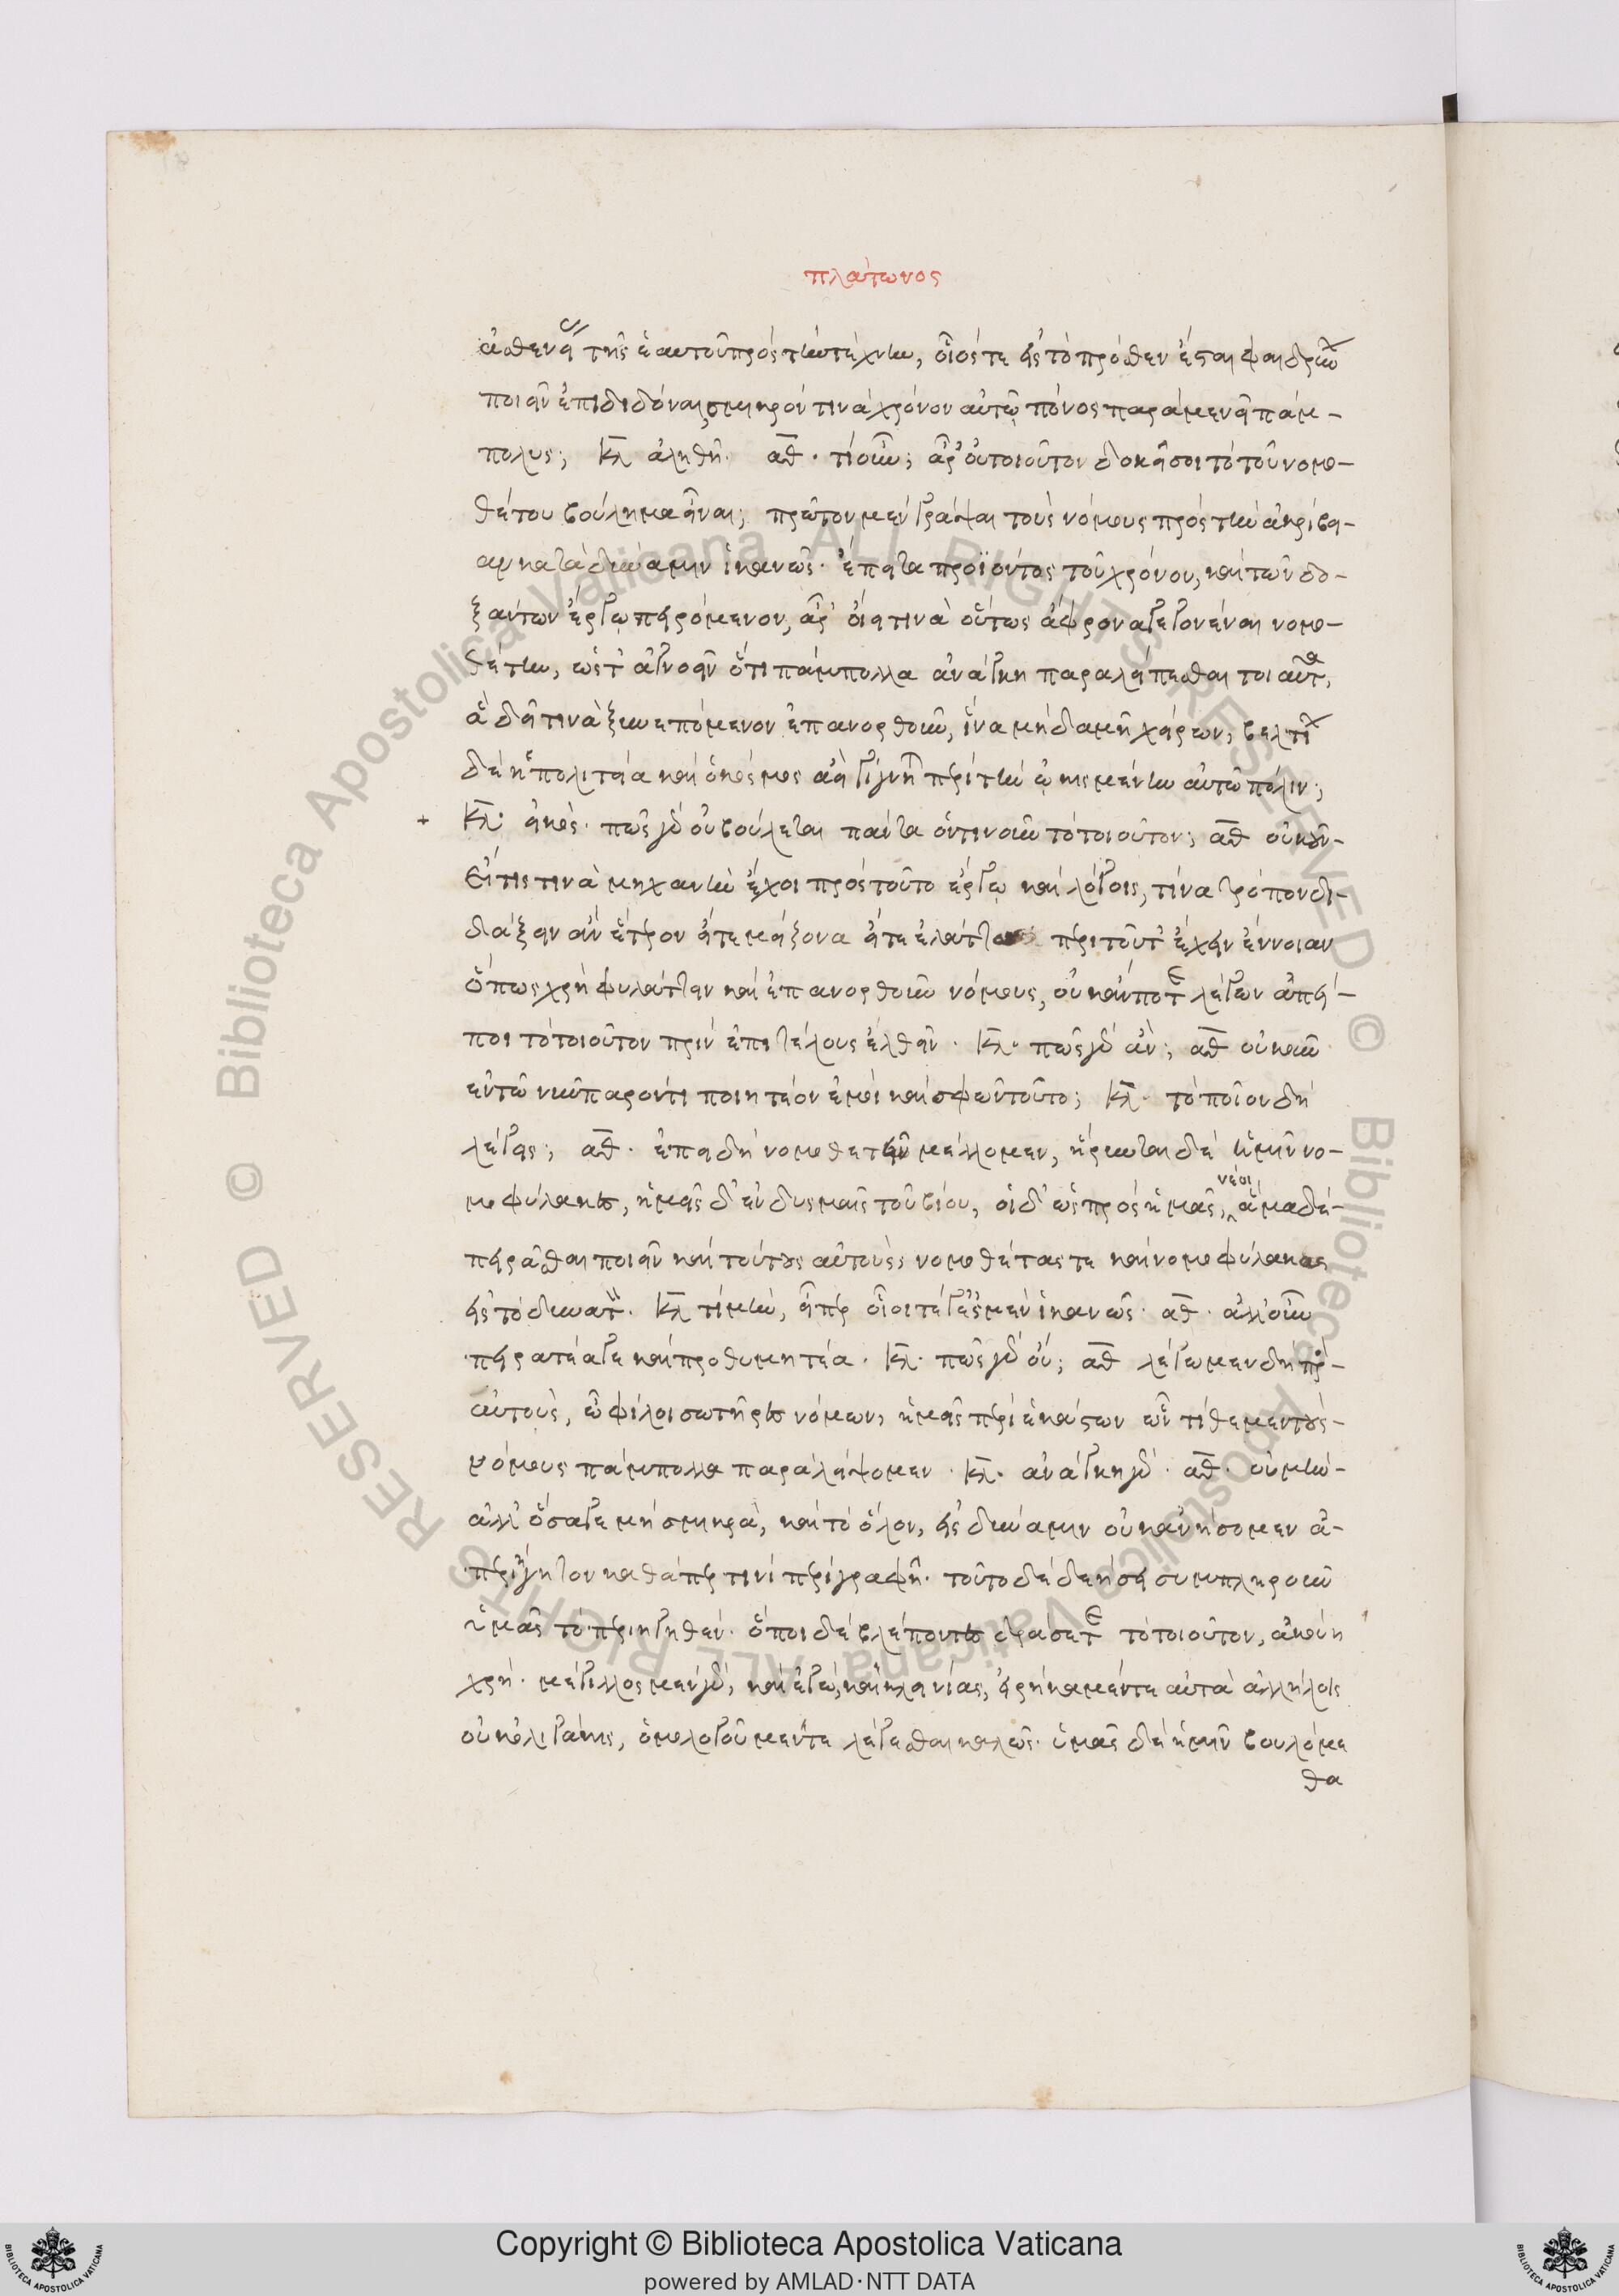 πλάτωνος
ἀσθενείας τῆς ἑαυτοῦ πρὸς τὴν τέχνην, οἷός τε εἰς τὸ πρόσθεν ἔσται φαιδρύνων
ποιεῖν ἐπιδιδόναι, σμικρόν τινα χρόνον αὐτῷ πόνος παραμενεῖ πάμ-
πολυς; Κλ ἀληθῆ. ἀθ. τί οὖν; ἆρ' οὐ τοιοῦτον δοκεῖ σοι τὸ τοῦ νομο-
θέτου βούλημα εἶναι; πρῶτον μὲν γράψαι τοὺς νόμους πρὸς τὴν ἀκρίβει-
αν κατὰ δύναμιν ἱκανῶς. ἔπειτα προϊόντος τοῦ χρόνου, καὶ τῶν δο-
ξάντων ἔργῳ πειρώμενον, ἆρ' οἴει τινὰ οὕτως ἄφρονα γεγονέναι νομο-
θέτην, ὥστ' ἀγνοεῖν ὅτι πάμπολλα ἀνάγκη παραλείπεσθαι τοιαῦτα,
ἃ δεῖ τινὰ ξυνεπόμενον ἐπανορθοῦν, ἵνα μηδαμῇ χείρων, βελτίων
δὲ ἡ πολιτεία καὶ ὁ κόσμος ἀεὶ γίγνηται περὶ τὴν ᾠκισμένην αὐτῷ πόλιν;
Κλ. εἰκὸς. πῶς γὰρ οὐ βούλεται πάντα ὁντινοῦν τὸ τοιοῦτον; ἀθ οὐκοῦν-
εἴ τις τινὰ μηχανὴν ἔχοι πρὸς τοῦτο ἔργῳ καὶ λόγοις, τίνα τρόπον δι-
δάξειεν ἂν ἕτερον εἴτε μείζονα εἴτε ἐλάττω περὶ τοῦτ' ἔχειν ἔννοιαν
ὅπως χρὴ φυλάττειν καὶ ἐπανορθοῦν νόμους, οὐκ ἄν ποτε λέγων ἀπεί-
ποι τὸ τοιοῦτον πρὶν ἐπὶ τέλους ἐλθεῖν. Κλ. πῶς γὰρ ἄν; ἀθ οὐκοῦν
ἐν τῷ νῦν παρόντι ποιητέον ἐμοὶ καὶ σφῷν τοῦτο; Κλ. τὸ ποῖον δὴ
λέγεις; ἀθ. ἐπειδὴ νομοθετεῖν μέλλομεν, ᾕρηνται δὲ ἡμῖν νο-
μοφύλακες, ἡμεῖς δ' ἐν δυσμαῖς τοῦ βίου, οἱ δ' ὡς πρὸς ἡμᾶς, νέοι ἅμα δεῖ-
πειρᾶσθαι ποιεῖν καὶ τούτους αὐτοὺς, νομοθέτας τε καὶ νομοφύλακας
εἰς τὸ δυνατόν. Κλ τί μὴν, εἴπερ οἷοί τέ γ' ἐσμὲν ἱκανῶς. ἀθ. ἀλλ' οὖν
πειρατέα γε καὶ προθυμητέα. Κλ. πῶς γὰρ οὔ; ἀθ λέγωμεν δὴ πρὸς-
αὐτοὺς, ὦ φίλοι σωτῆρες νόμων, ἡμεῖς περὶ ἑκάστων ὧν τίθεμεν τοὺς-
νόμους πάμπολλα παραλείψομεν. Κλ. ἀνάγκη γάρ. ἀθ. οὐ μὴν-
ἀλλ' ὅσα γε μὴ σμικρὰ, καὶ τὸ ὅλον, εἰς δύναμιν οὐκ ἀνήσομεν ἀ-
περιήγητον καθάπερ τινὶ περιγραφῇ. τοῦτο δὲ δεήσει συμπληροῦν
ὑμᾶς τὸ περιηγηθέν. ὅποι δὲ βλέποντες δράσετε τὸ τοιοῦτον, ἀκούειν
χρή. μέγιλλος μὲν γὰρ, καὶ ἐγὼ, καὶ κλεινίας, εἰρήκαμέν τε αὐτὰ ἀλλήλοις
οὐκ ὀλιγάκις, ὁμολογοῦμέν τε λέγεσθαι καλῶς. ὑμᾶς δὲ ἡμῖν βουλόμε
θα
Copyright © Biblioteca Apostolica Vaticana
powered by AMLAD·NTT DATA